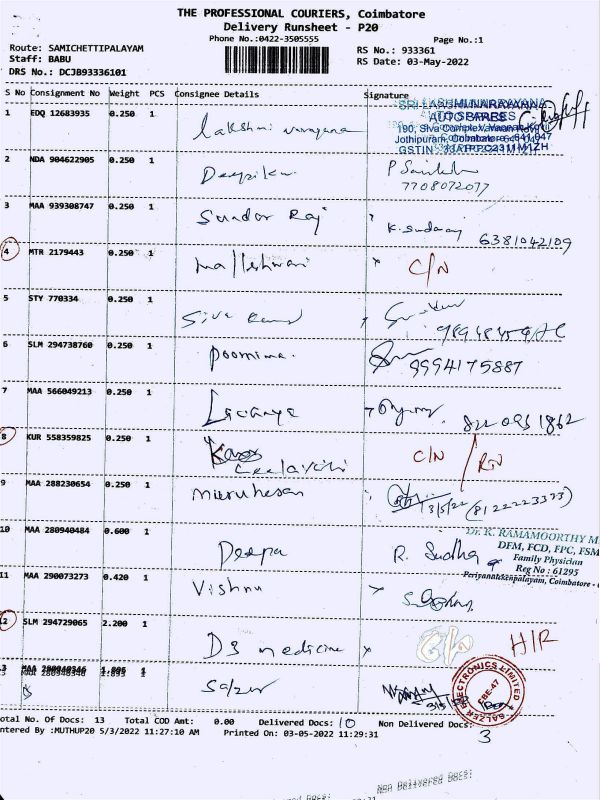 THE PROFESSIONAL COURIERS, Coimbatore
Delivery Runsheet - P20
Phone No.:0422-3505555
Page No.:1
Route: SAMICHETTIPALAYAM
Staff: BABU
DRS No.: DCJB93336101
RS No.: 933361
RS Date: 03-May-2022
S No Consignment No Weight PCS Consignee Details Signature
1 EDQ 12683935 0.250 1 Lakshmi narayana
AUTO SPARES
2 NDA 904622905 0.250 1 Deepika P
7708072077
3 MAA 939308747 0.250 1 Sundar Raj K. Sundaraj 6381042109
4 MTR 2179443 0.250 1 Malleshwari x C/N
5 STY 770334 0.250 1 Siva
6 SLM 294738760 0.250 1 Poornima. 9994175887
7 MAA 566049213 0.250 1 Lavanya
8 KUR 558359825 0.250 1 C/N
9 MAA 288230654 0.250 1 Muruhesan 3/5/22 (8122223323)
10 MAA 280940484 0.600 1 Deepa R. Sudha
Dr. K. RAMAMOORTHY M.
DFM, FCD, FPC, FSM
Family Physician
Reg No : 61295
Periyanaickenpalayam, Coimbatore -
11 MAA 290073273 0.420 1 Vishnu
12 SLM 294729065 2.200 1 DS medicine x H/R
13 MAA 280940346 1.895 1 Salzer
ELECTRONICS LIMITED
SALZER
CBE-47
otal No. Of Docs: 13 Total COD Amt: 0.00 Delivered Docs: 10 Non Delivered Docs: 3
ntered By :MUTHUP20 5/3/2022 11:27:10 AM Printed On: 03-05-2022 11:29:31
Non Delivered Docs: